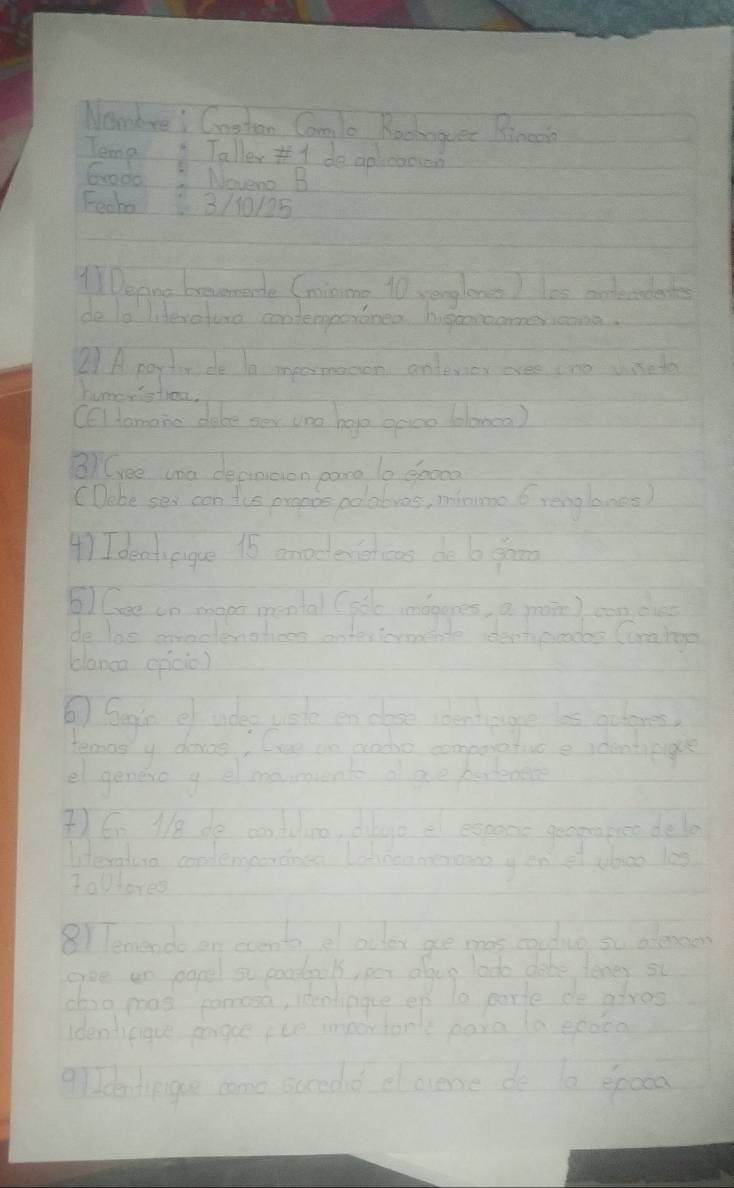 Nombre: Cristian Camilo Rodriguez Rincon
Tema : Taller #1 de aplicacion
Grado : Noveno B
Fecha : 3/10/25
1) Defina brevemente (minimo 10 renglones) los antecedentes
de la literatura contemporánea hispanoamericana.
2) A partir de la informacion anterior cree una viñeta
humoristica.
(El tamaño debe ser una hoja opcio blanca)
3) Cree una definicion para la época
(Debe ser con tus propias palabras, minimo 6 renglones)
4) Identifique 15 caracteristicas de la época
5) Cree un mapa mental (sólo imágenes, a mano) con diez
de las caracteristicas anteriormente identificadas (una hoja
blanca oficio)
6) Según el video visto en clase identifique los autores,
temas y obras, Cree un cuadro comparativo e identifique
el genero y el movimiento al que pertenece
7) En 1/8 de cartulina, dibuje el espacio geografico de la
literatura contemporánea Latinoamericana y en el ubica los
7 autores
8) Teniendo en cuenta el autor que mas cautivo su atencion
cree en papel su facebook, por algun lado debe tener su
obra mas famosa, identifique en la parte de atras
identifique porque fue importante para la epoca
9) Identifique como sucedió el cierre de la época